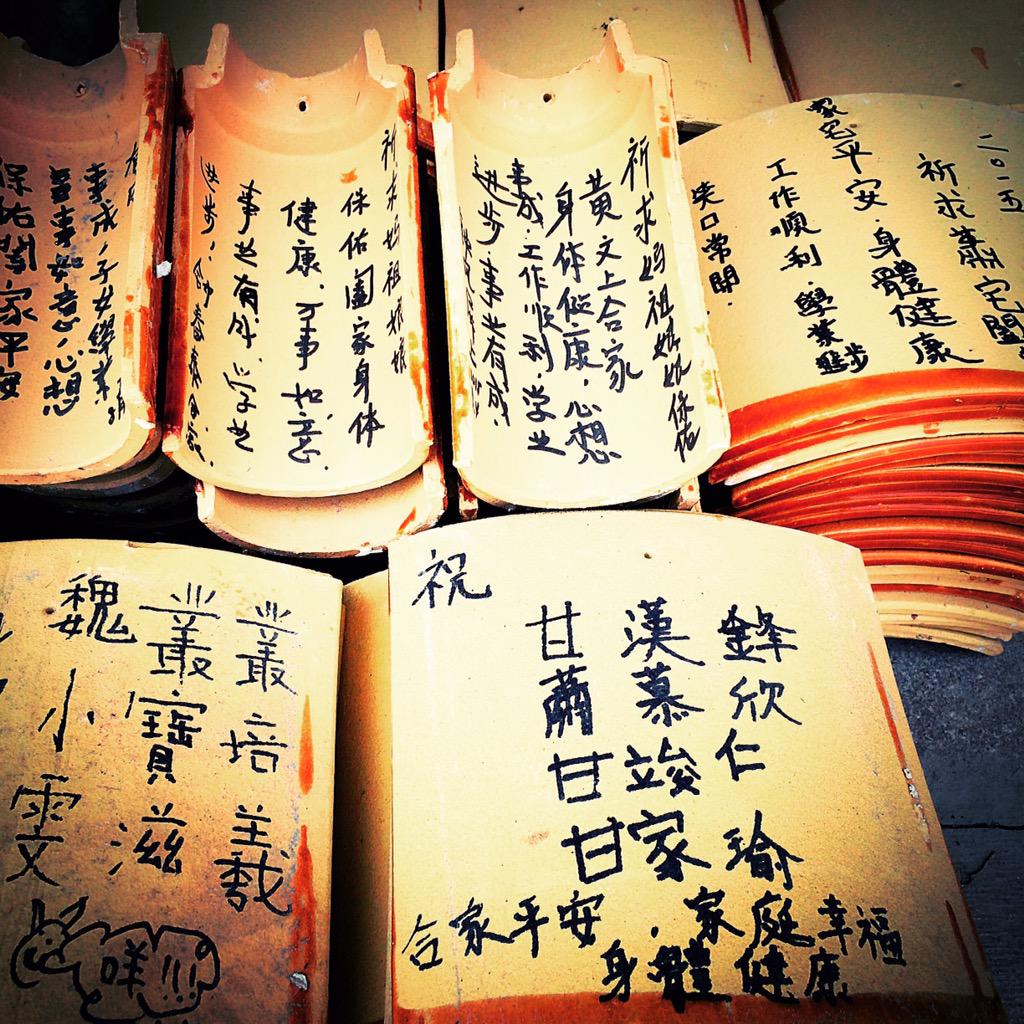 事成，子女學業
萬事如意，心想
保佑闔家平安
祈求妈祖娘娘
保佑阖家身体
健康，万事如意。
事业有成，学业
进步，
祈求妈祖娘娘保佑
黄文上合家
身体健康，心想
事成，工作顺利，学业
进步，事业有成，
二〇一五
祈求蕭宅闔
家宅平安，身體健康
工作順利，學業進步
笑口常開．
叢培義
叢寶滋
魏小雯
咩!!!
祝
甘漢鋒
蕭慕欣
甘竣仁
甘家瑜
合家平安，家庭幸福
身體健康